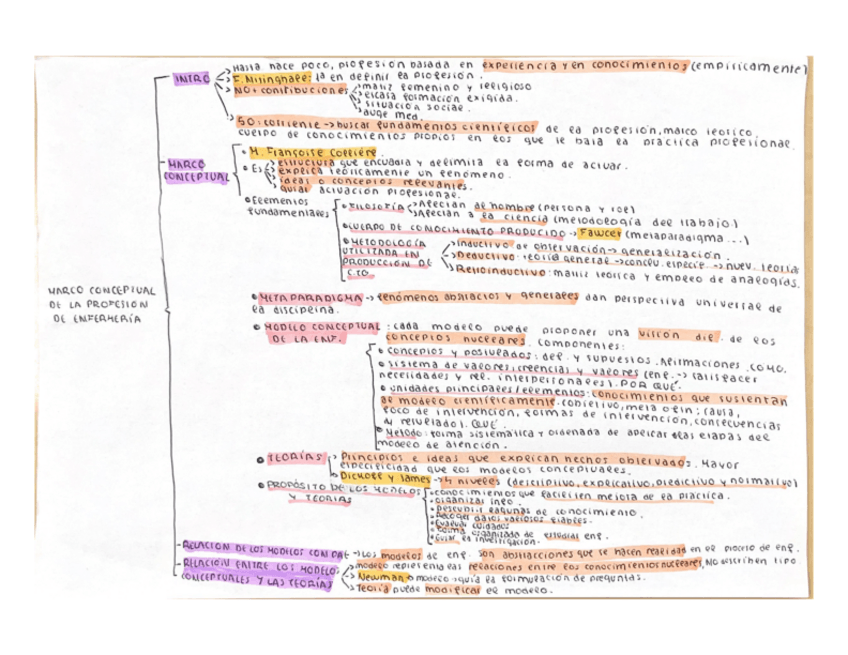 hasta hace poco, profesión basada en experiencia y en conocimientos (empíricamente)
INTRO
F. Nithinghale: 1ª en definir la profesión.
NO + contribuciones
matiz femenino y religioso
escasa formación exigida.
situación social.
auge med.
50: corriente → buscar fundamentos científicos de la profesión, marco teórico,
cuerpo de conocimientos propios en los que se basa la práctica profesional.
MARCO CONCEPTUAL
• M. Françoise Collière.
• Es
estructura que encuadra y delimita la forma de actuar.
explica teóricamente un fenómeno.
ideas o conceptos relevantes.
guiar actuación profesional.
• Elementos fundamentales
• FILOSOFÍA
Afectan al hombre (persona y rol)
Afectan a la ciencia (metodología del trabajo)
• CUERPO DE CONOCIMIENTO PRODUCIDO → Fawcer (metaparadigma ...)
• METODOLOGÍA UTILIZADA EN PRODUCCIÓN DE CTO
Inductivo de observación → generalización.
Deductivo: teoría general → conclu. especif. → nuev. teorías
Retroinductivo: matiz teórica y empleo de analogías.
MARCO CONCEPTUAL
DE LA PROFESION
DE ENFERMERÍA
• META PARADIGMA → fenómenos abstractos y generales dan perspectiva universal de
la disciplina.
• MODELO CONCEPTUAL DE LA ENF. : cada modelo puede proponer una visión dif. de los
conceptos nucleares. Componentes:
• conceptos y postulados: def. y supuestos. Afirmaciones. COMO.
• sistema de valores: creencias y valores (enf. → satisfacer
necesidades y rel. interpersonales). POR QUÉ.
• unidades principales/elementos: conocimientos que sustentan
al modelo científicamente. (objetivo, meta o fin; causa,
foco de intervención, formas de intervención, consecuencias
o resultado). QUÉ.
• Método: forma sistemática y ordenada de aplicar las etapas del
modelo de atención.
• TEORÍAS
Principios e ideas que explican hechos observados. Mayor
especificidad que los modelos conceptuales.
Dickoff y James → 4 niveles (descriptivo, explicativo, predictivo y normativo)
• PROPÓSITO DE LOS MODELOS Y TEORÍAS
• conocimientos que faciliten mejora de la práctica.
• organizar info.
• Descubrir lagunas de conocimiento.
• Recoger datos valiosos fiables.
• Evaluar cuidados
• Forma organizada de estudiar enf.
• Guiar la investigación.
- RELACION DE LOS MODELOS CON PAE → Los modelos de enf. son abstracciones que se hacen realidad en el proceso de enf.
- RELACIÓN ENTRE LOS MODELOS CONCEPTUALES Y LAS TEORÍAS
modelo representa las relaciones entre los conocimientos nucleares, NO describen tipo
Newman → modelo → guía la formulación de preguntas.
Teoría puede modificar el modelo.